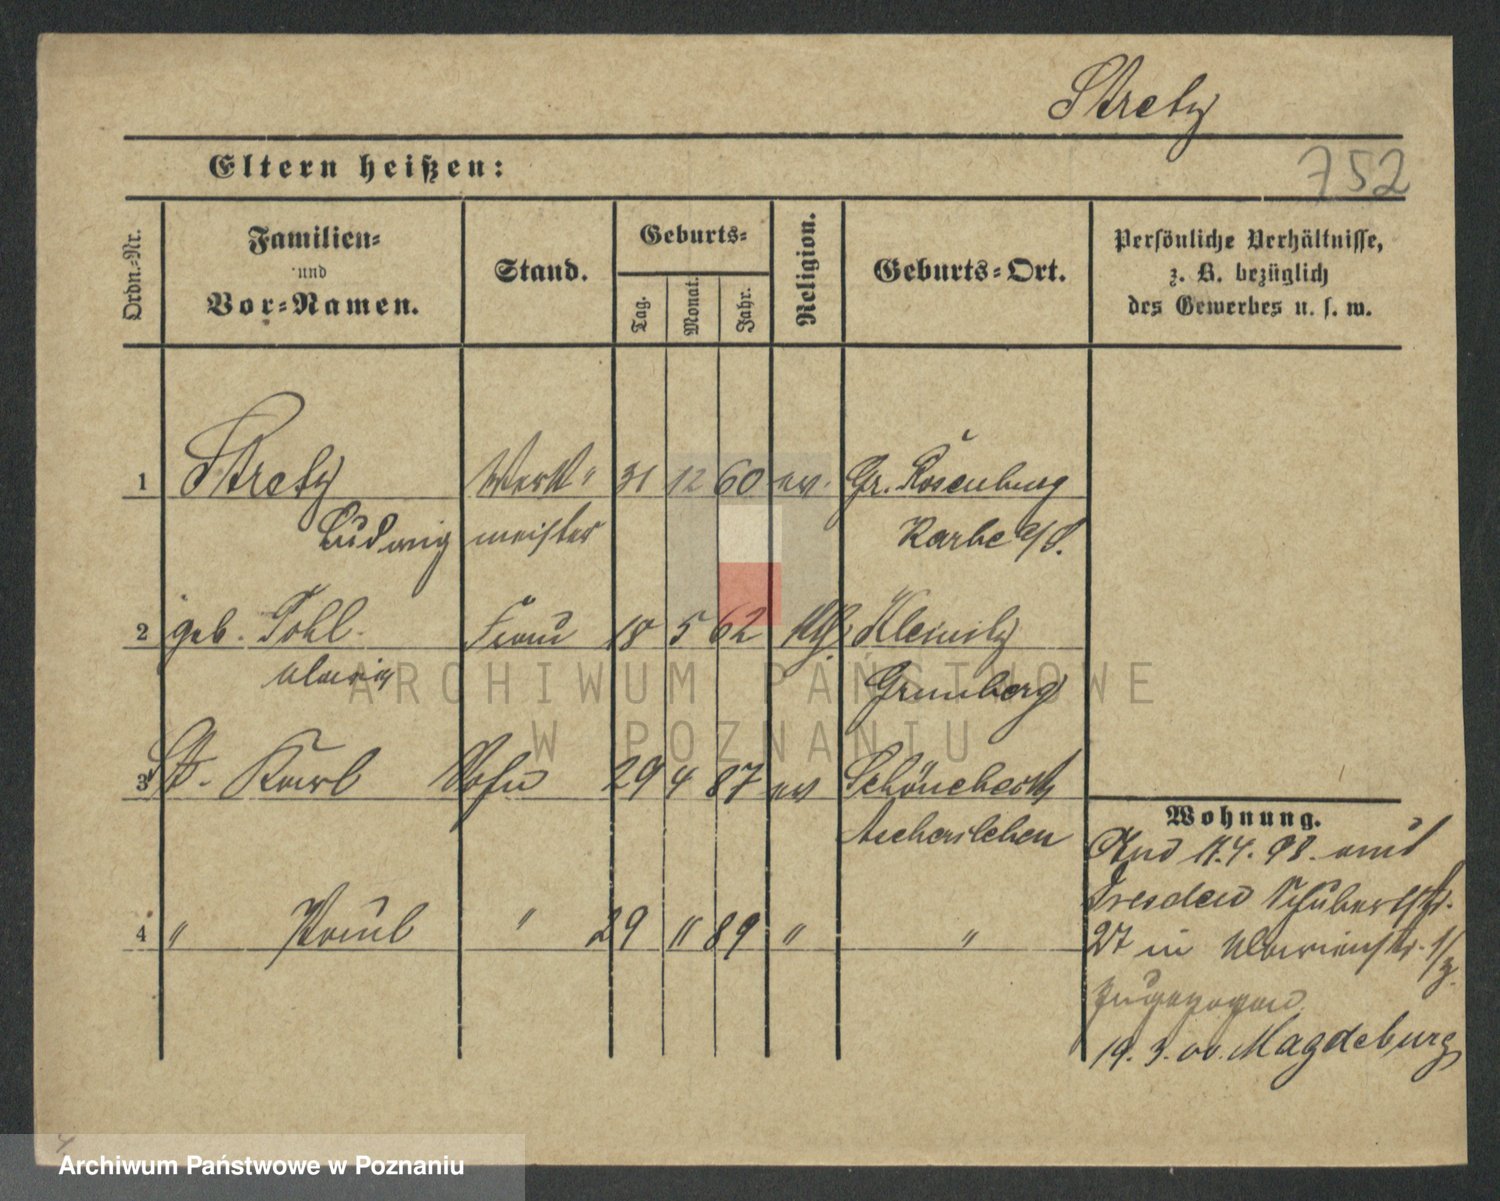 Strety
Eltern heißen:
752
Ordn.-Nr.
Familien-
und
Vor-Namen.
Stand.
Geburts-
Tag.
Monat.
Jahr.
Religion.
Geburts-Ort.
Persönliche Verhältnisse,
z. B. bezüglich
des Gewerbes u. s. w.
1 Strety Werk- 31 12 60 ev. Gr. Rosenburg
Ludwig meister Karbe a/S.
2 geb. Pohl. Frau 18 5 62 Kleinitz
Maria Grünberg
3 St. Karl Sohn 29 4 87 ev
Aschersleben
4 " Paul " 29 " 89 " "
Wohnung.
Sind 11.4.98. aus
Dresden Schubertstr.
27 in Marienstr.
zugezogen
19.3.00. Magdeburg
ARCHIWUM PAŃSTWOWE
W POZNANIU
Archiwum Państwowe w Poznaniu